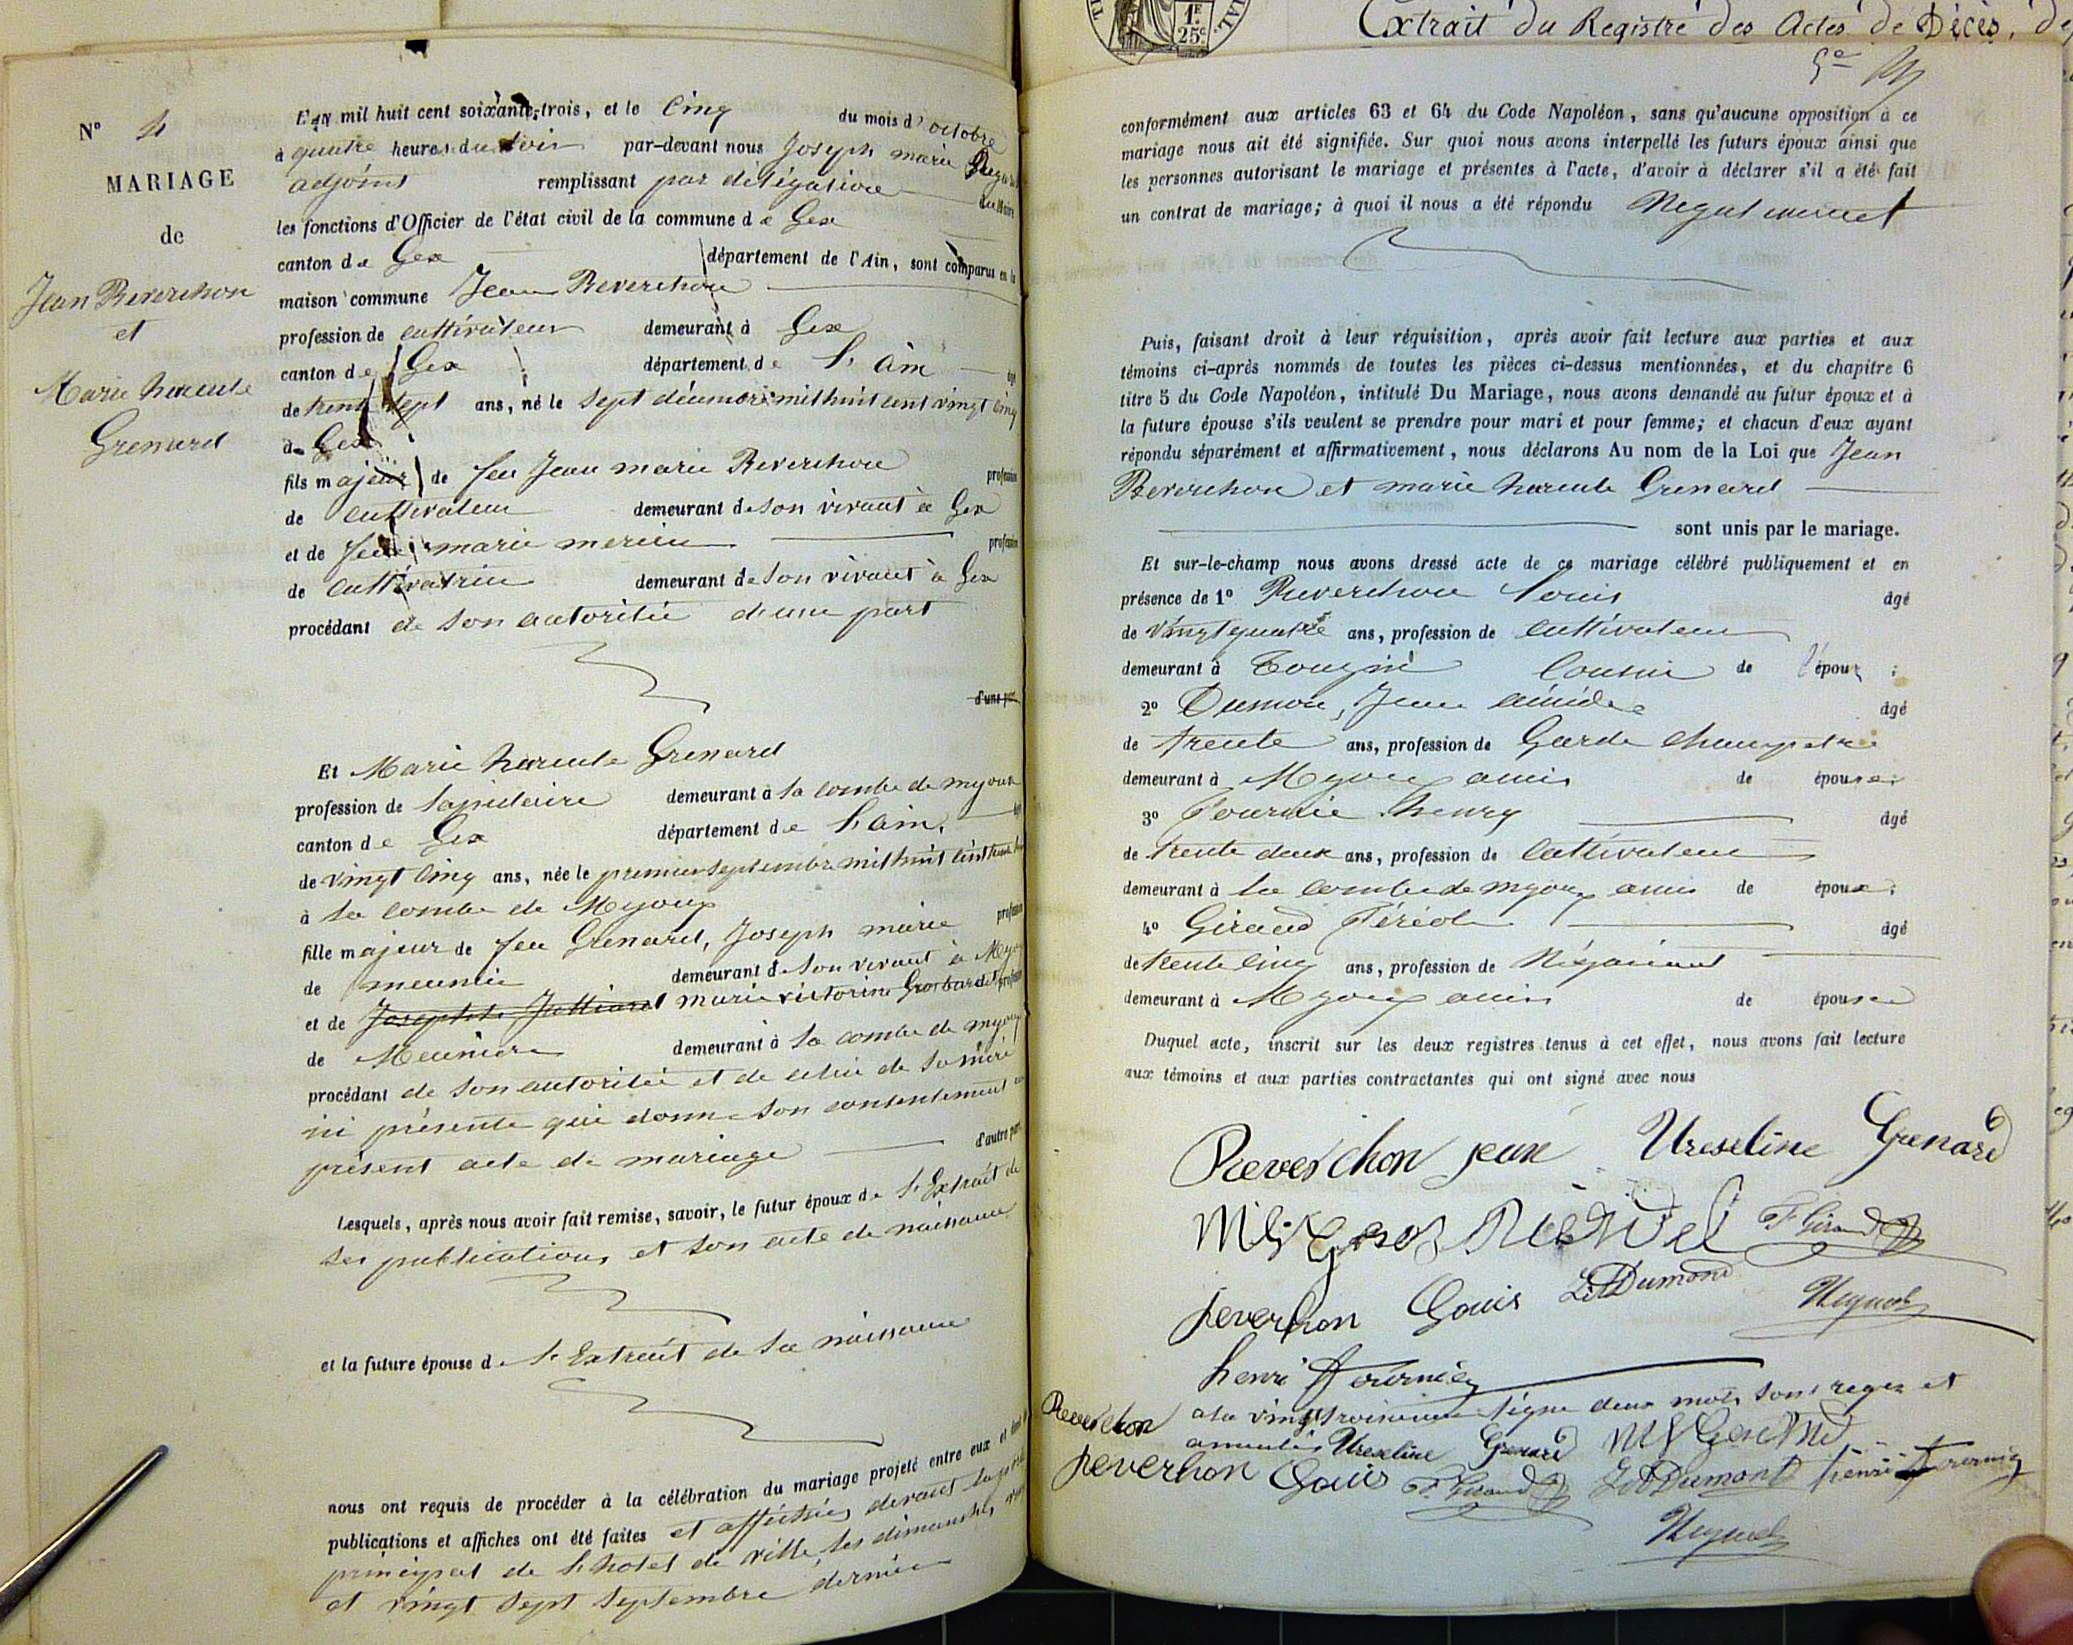 1F.
25c.
Extrait du Registre des Actes de Décès, de
N° 4
MARIAGE
de
Jean Reverchon
et
Marie
Grenard
L'AN mil huit cent soixante-trois, et le Cinq du mois d'octobre
à quatre heures du soir par-devant nous Joseph marie
adjoint remplissant par délégation du Maire
les fonctions d'Officier de l'état civil de la commune de Gex
canton de Gex département de l'Ain, sont comparus en la
maison commune Jean Reverchon
profession de cultivateur demeurant à Gex
canton de Gex département de L'ain
de trente sept ans, né le sept décembre mil huit cent vingt cinq
à Gex
fils majeur de feu Jean marie Reverchon profession
de cultivateur demeurant de son vivant à Gex
et de feue marie mercier profession
de cultivatrice demeurant de son vivant à Gex
procédant de son autoritée d'une part
d'une part
Et Marie Grenard
profession de lapidaire demeurant à la combe de myoux
canton de Gex département de L'ain.
de vingt cinq ans, née le premier septembre mil huit cent trente
à la combe de Myoux
fille majeur de feu Grenard, Joseph marie profession
de meunier demeurant de son vivant à
et de Josephte Julliard marie victorine Grosbardet profession
de Meunière demeurant à la combe de myoux
procédant de son autoritée et de celui de sa mère
ici présente qui donne son consentement au
présent acte de mariage d'autre part
Lesquels, après nous avoir fait remise, savoir, le futur époux de l'Extrait de
ses publications et son acte de naissance
et la future épouse d l'Extrait de sa naissance
nous ont requis de procéder à la célébration du mariage projeté entre eux et dont les
publications et affiches ont été faites et affichées devant la porte
principal de l'hotel de ville les dimanches
et vingt sept septembre dernier
conformément aux articles 63 et 64 du Code Napoléon, sans qu'aucune opposition à ce
mariage nous ait été signifiée. Sur quoi nous avons interpellé les futurs époux ainsi que
les personnes autorisant le mariage et présentes à l'acte, d'avoir à déclarer s'il a été fait
un contrat de mariage; à quoi il nous a été répondu Négativement
Puis, faisant droit à leur réquisition, après avoir fait lecture aux parties et aux
témoins ci-après nommés de toutes les pièces ci-dessus mentionnées, et du chapitre 6
titre 5 du Code Napoléon, intitulé Du Mariage, nous avons demandé au futur époux et à
la future épouse s'ils veulent se prendre pour mari et pour femme; et chacun d'eux ayant
répondu séparément et affirmativement, nous déclarons Au nom de la Loi que Jean
Reverchon et marie Grenard
sont unis par le mariage.
Et sur-le-champ nous avons dressé acte de ce mariage célébré publiquement et en
présence de 1° Reverchon Louis âgé
de vingt quatre ans, profession de cultivateur
demeurant à Cousin de l'époux ;
2° Dumon, Jean âgé
de trente ans, profession de Garde champetre
demeurant à Myoux amis de épouse;
3° Fournie henry âgé
de trente deux ans, profession de Cultivateur
demeurant à la combe de myoux amis de épouse;
4° Giraud Féréol âgé
de trente cinq ans, profession de Négociant
demeurant à Myoux amis de épouse
Duquel acte, inscrit sur les deux registres tenus à cet effet, nous avons fait lecture
aux témoins et aux parties contractantes qui ont signé avec nous
Reverchon jean Urseline Grenard
F. Giraud
reverchon Louis Dumond
henri fournier
a la vingt troisieme ligne deux mots sont rayer et
Reverchon annulés Urseline Grenard
reverchon Louis F. Giraud Dumont henri fournier